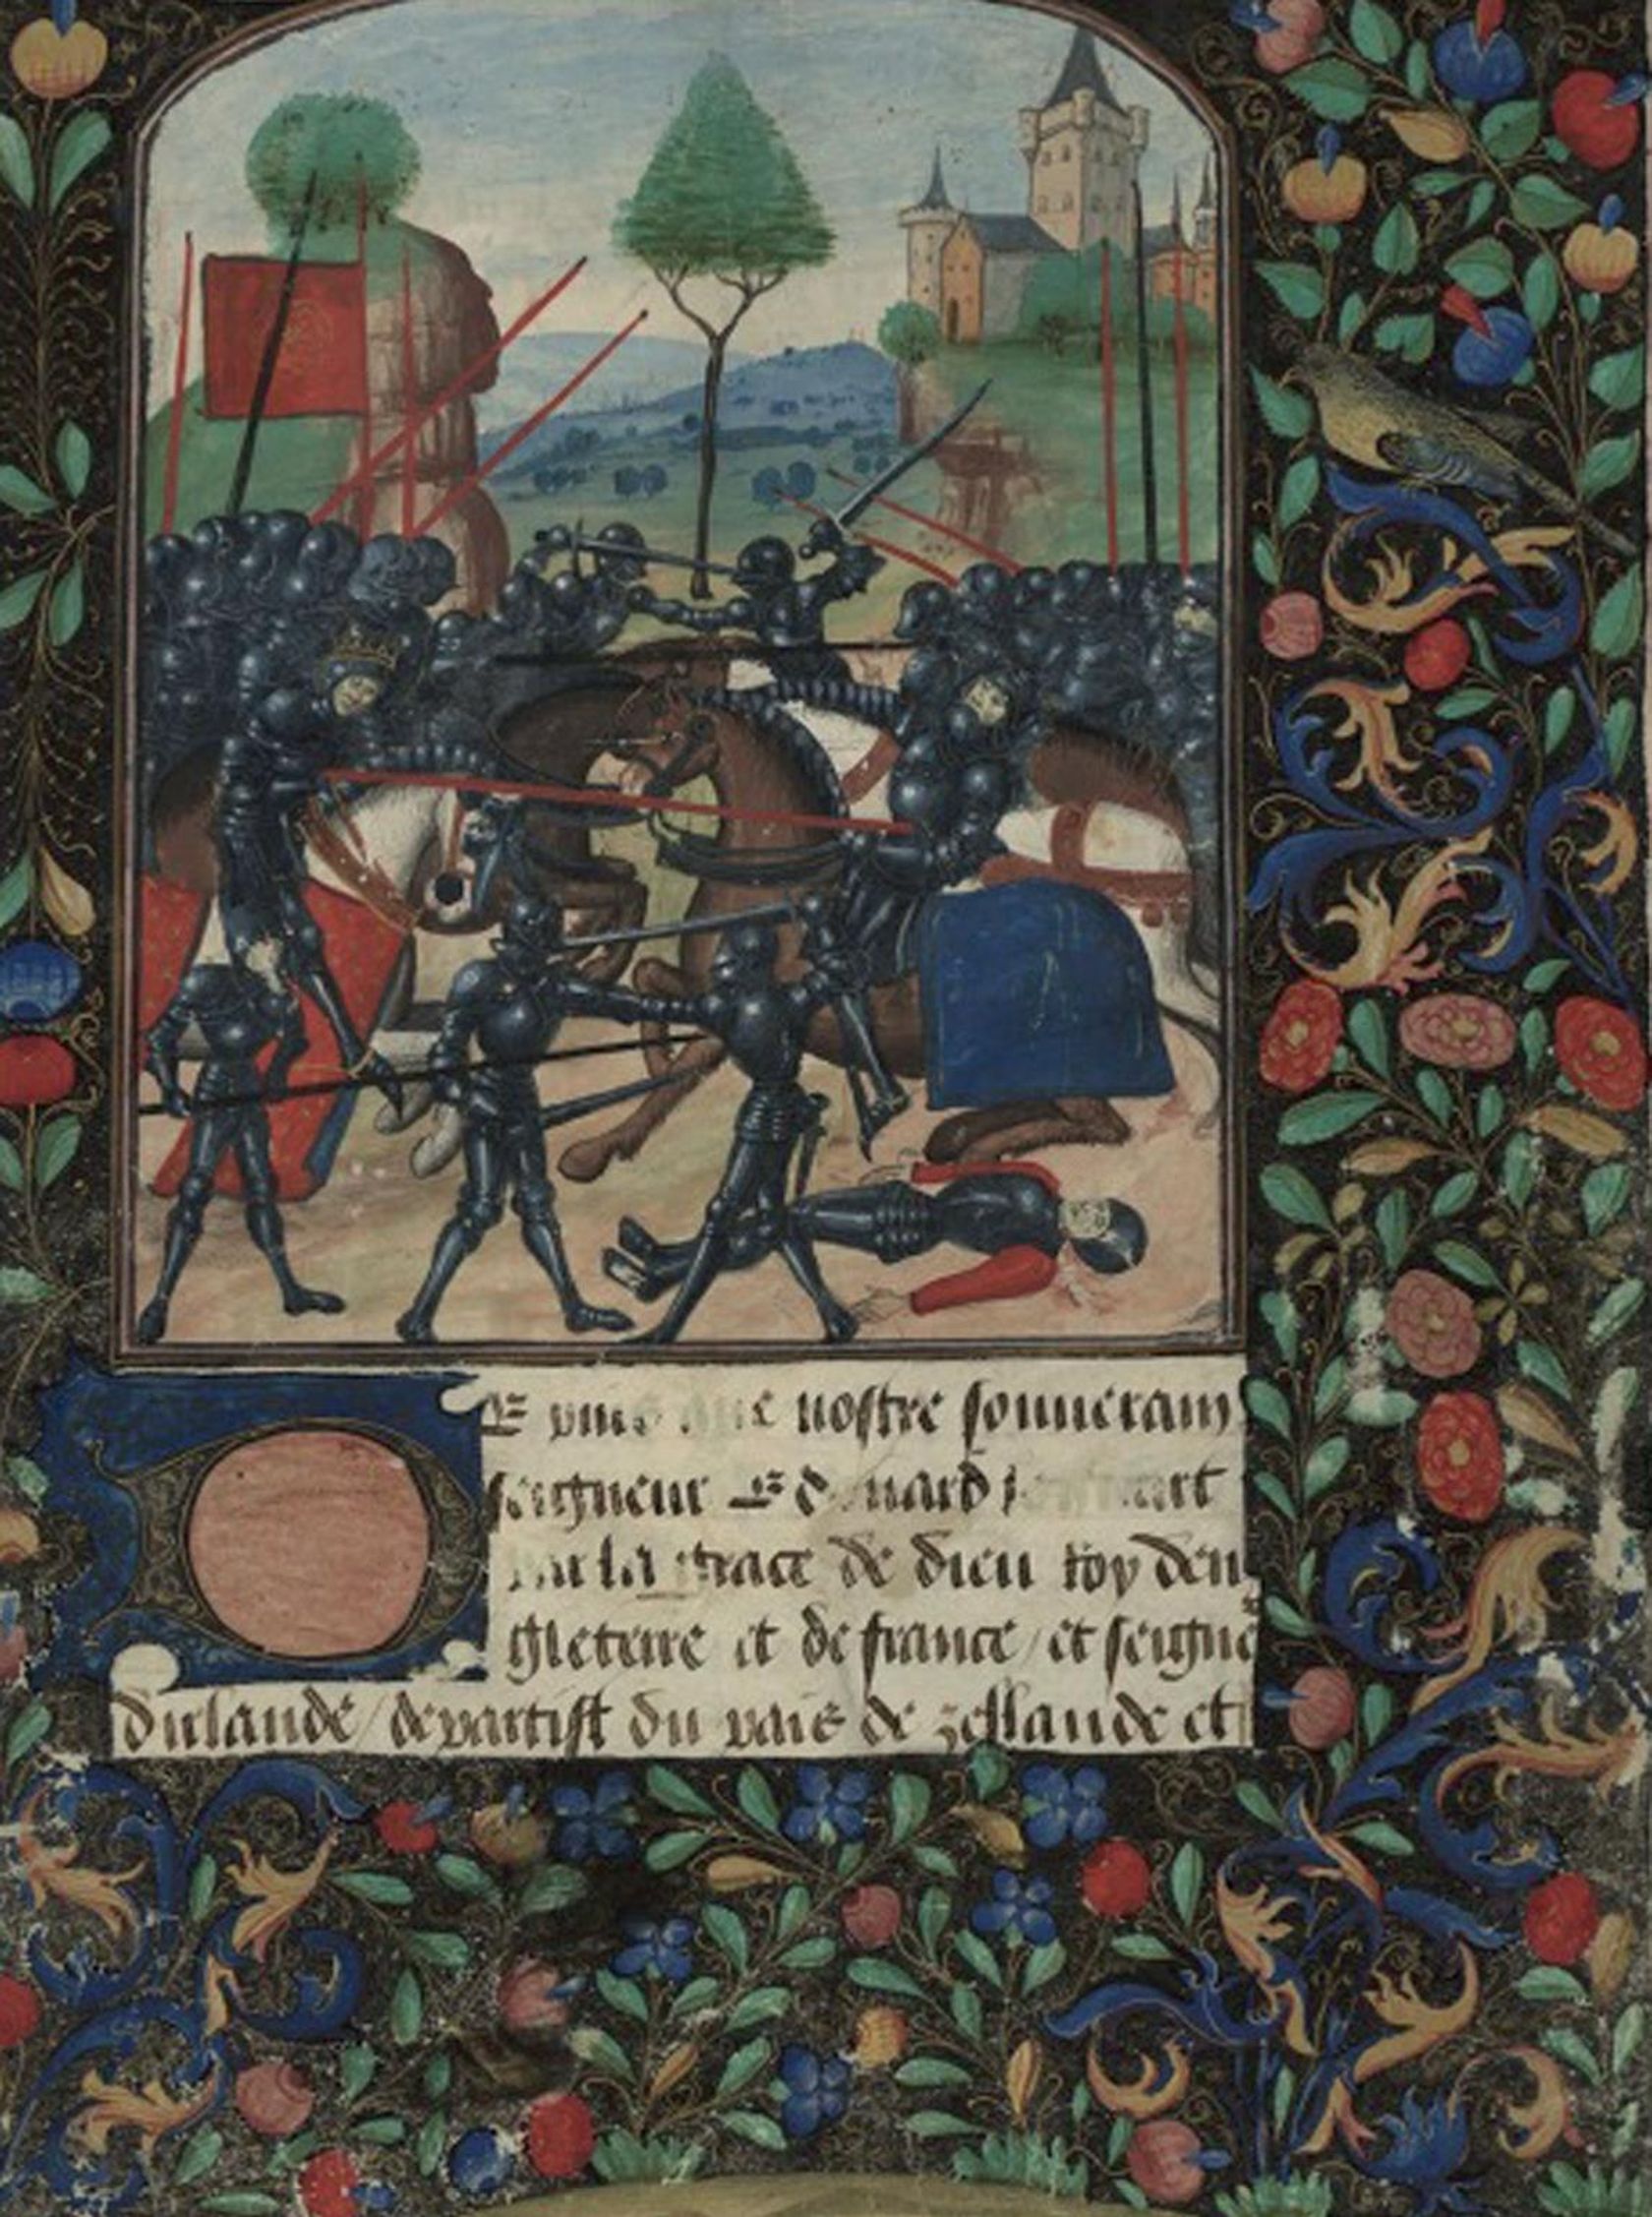 E puis que nostre souuerain
seigneur Edouard
par la grace de dieu roy den
gleterre et de france / et seigne
dirlande / departist du païs de zellande et